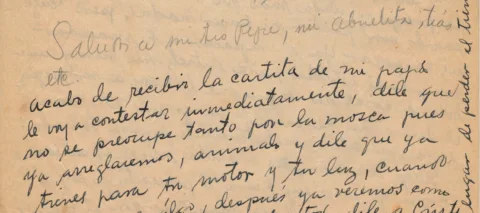 Saludos a mi tío Pepe, mi abuelita, tías
etc.
acabo de recibir la cartita de mi papá
le voy a contestar inmediatamente, dile que
no se preocupe tanto por la mosca pues
ya arreglaremos, animals y dile que ya
tienes para tu motor y tu luz, cuando
después ya veremos como
dile a
lugar de perder el tiem